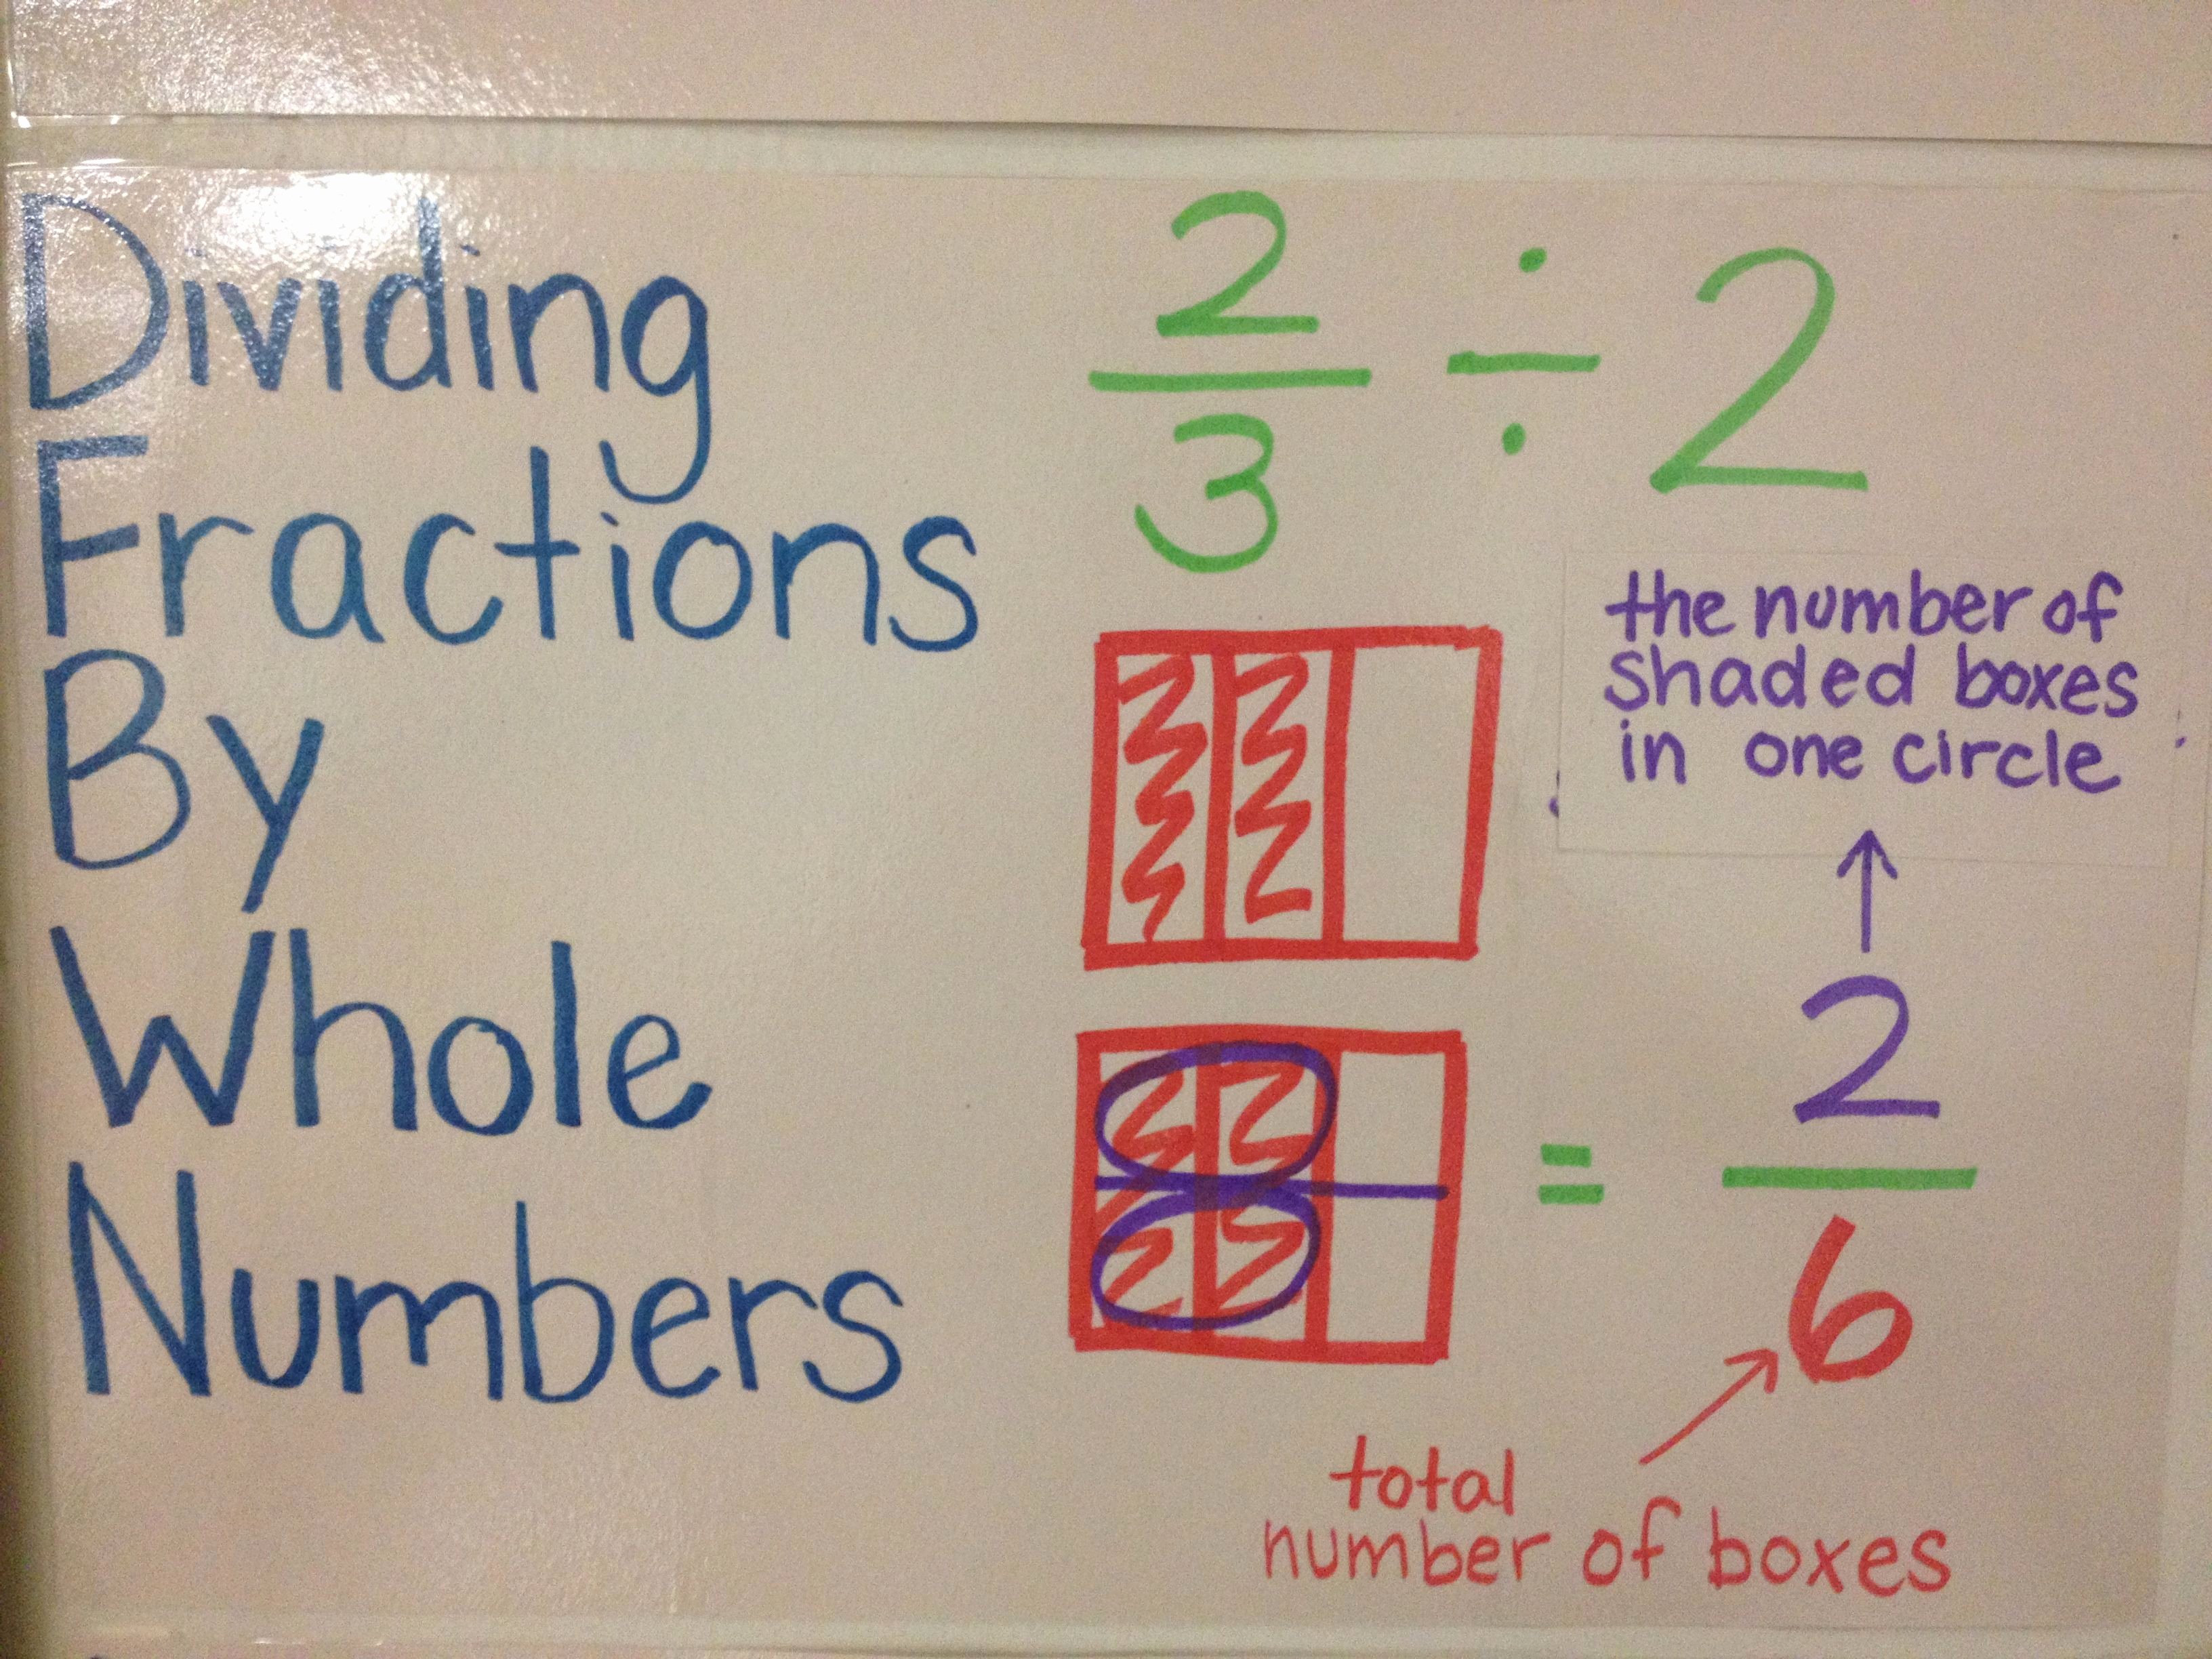 Dividing
Fractions
By
Whole
Numbers
2/3 ÷ 2
the number of
shaded boxes
in one circle
= 2/6
total
number of boxes